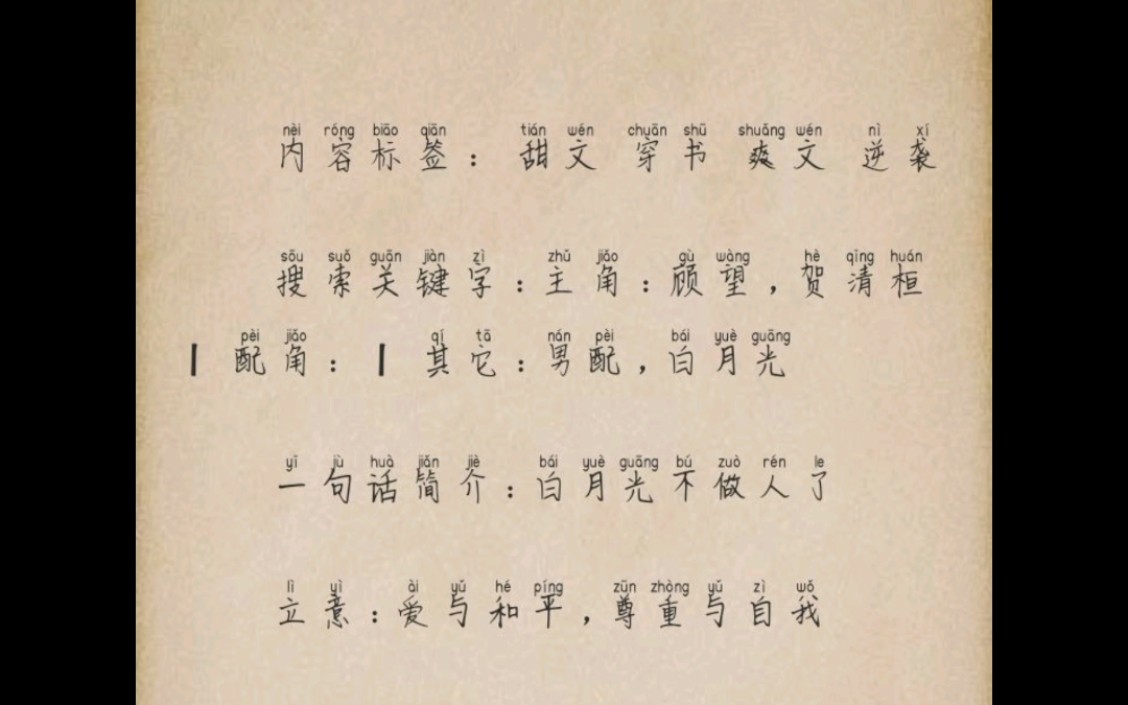 nèi róng biāo qiān tián wén chuān shū shuǎng wén nì xí
内容标签：甜文 穿书 爽文 逆袭
sōu suǒ guān jiàn zì zhǔ jiǎo gù wàng hè qīng huán
搜索关键字：主角：顾望，贺清桓
pèi jiǎo qí tā nán pèi bái yuè guāng
┃ 配角：┃ 其它：男配，白月光
yī jù huà jiǎn jiè bái yuè guāng bú zuò rén le
一句话简介：白月光不做人了
lì yì ài yǔ hé píng zūn zhòng yǔ zì wǒ
立意：爱与和平，尊重与自我